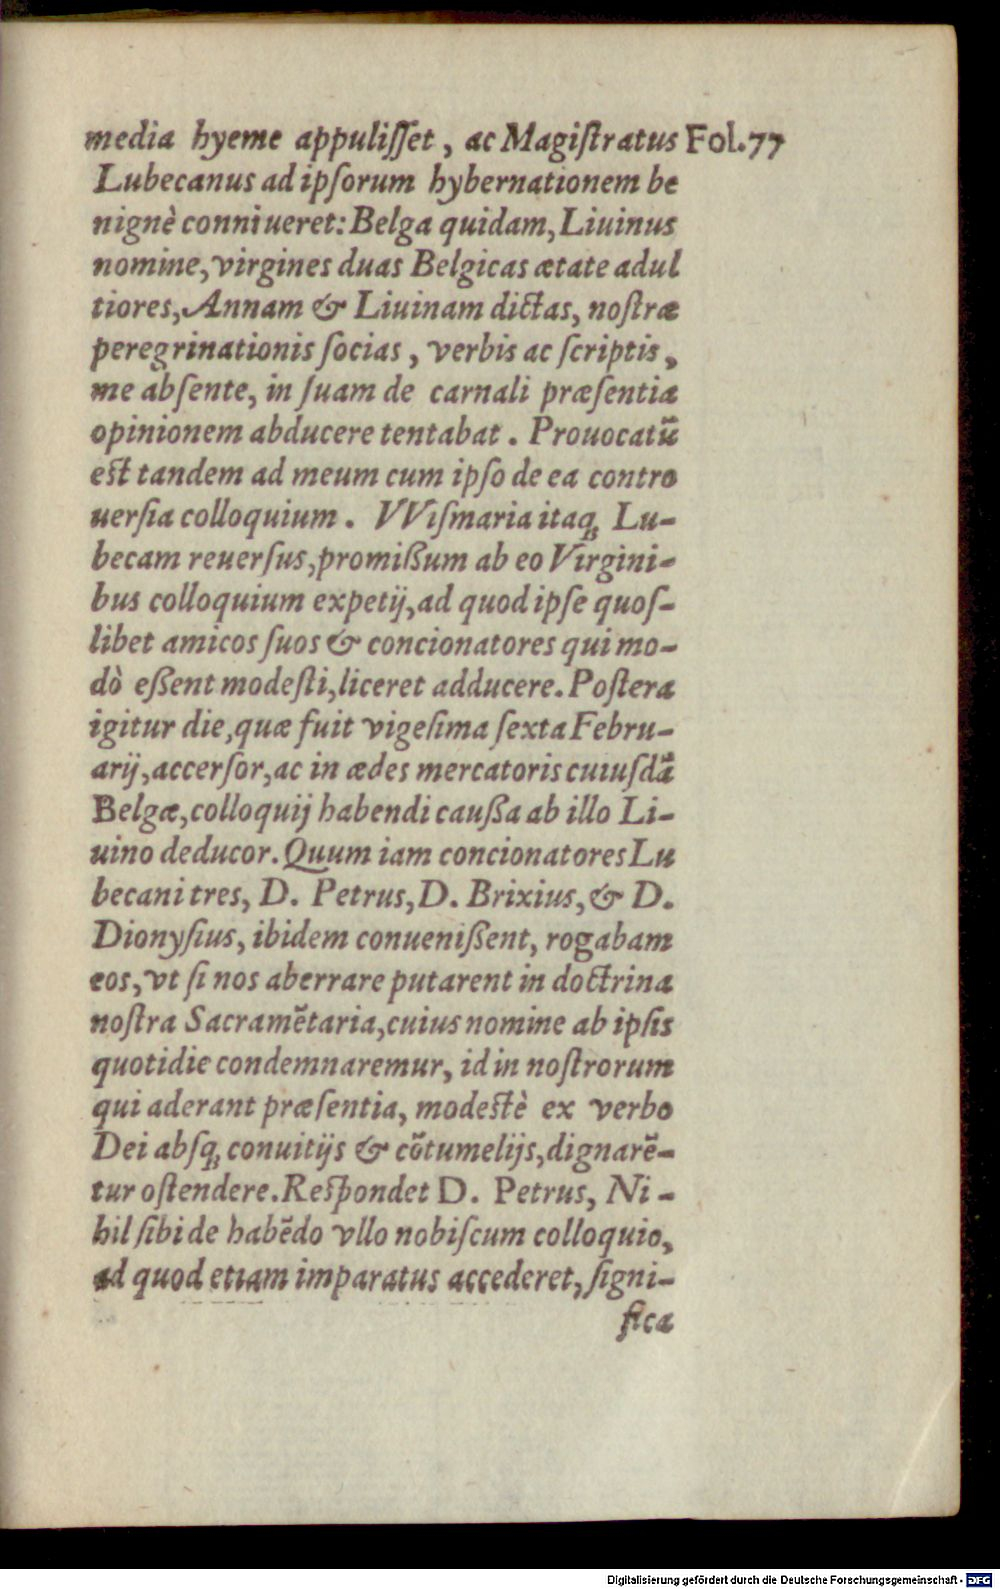 media hyeme appuliſſet, ac Magiſtratus Fol.77
Lubecanus ad ipſorum hybernationem be
nignè conniueret: Belga quidam, Liuinus
nomine, virgines duas Belgicas ætate adul
tiores, Annam & Liuinam dictas, noſtræ
peregrinationis ſocias, verbis ac ſcriptis,
me abſente, in ſuam de carnali præſentia
opinionem abducere tentabat. Prouocatũ
est tandem ad meum cum ipſo de ea contro
uerſia colloquium. VViſmaria itaq; Lu-
becam reuerſus, promißum ab eo Virgini-
bus colloquium expetij, ad quod ipſe quoſ-
libet amicos ſuos & concionatores qui mo-
dò eßent modeſti, liceret adducere. Poſtera
igitur die, quæ fuit vigeſima ſexta Febru-
arij, accerſor, ac in ædes mercatoris cuiuſdã
Belgæ, colloquij habendi caußa ab illo Li-
uino deducor. Quum iam concionatores Lu
becani tres, D. Petrus, D. Brixius, & D.
Dionyſius, ibidem conuenißent, rogabam
eos, vt ſi nos aberrare putarent in doctrina
noſtra Sacramẽtaria, cuius nomine ab ipſis
quotidie condemnaremur, id in noſtrorum
qui aderant præſentia, modestè ex verbo
Dei abſq; conuitijs & cõtumelijs, dignarẽ-
tur oſtendere. Reſpondet D. Petrus, Ni-
hil ſibi de habẽdo vllo nobiſcum colloquio,
ad quod etiam imparatus accederet, ſigni-
fica
Digitalisierung gefördert durch die Deutsche Forschungsgemeinschaft - DFG